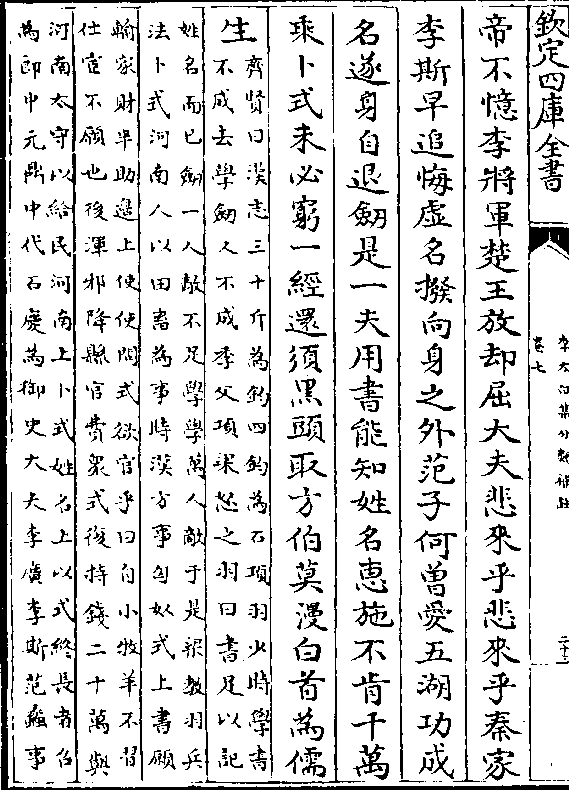 欽定四庫全書
李太白集分類補註
卷七
二十三
帝不憶李將軍楚王放却屈大夫悲來乎悲來乎秦家
李斯早追悔虛名撥向身之外范子何曽愛五湖功成
名遂身自退劒是一夫用書能知姓名惠施不肯干萬
乘卜式未必窮一經還須黑頭取方伯莫漫白首為儒
生
齊賢曰漢志三十斤為鈞四鈞為石項羽少時學書
不成去學劒又不成季父項梁怒之羽曰書足以記
姓名而已劒一人敵不足學學萬人敵于是梁教羽兵
法卜式河南人以田畜為事時漢方事匈奴式上書願
輸家財半助邊上使使問式欲官乎曰自小牧羊不習
仕宦不願也後渾邪降縣官費衆式復持錢二十萬與
河南太守以給民河南上卜式姓名上以式終長者召
為郎中元鼎中代石慶為御史大夫李廣李斯范蠡事